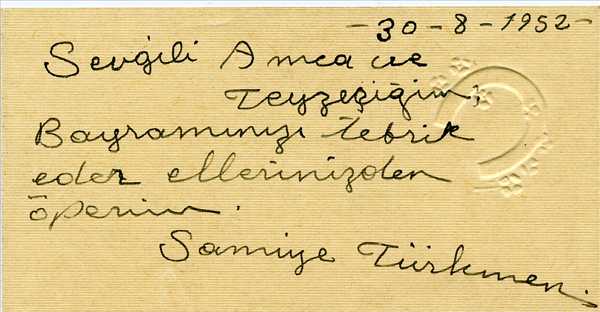 -30-8-1952-
Sevgili Amca ve
Teyzeciğim;
Bayramınızı tebrik
eder ellerinizden
öperim.
Samiye Türkmen.